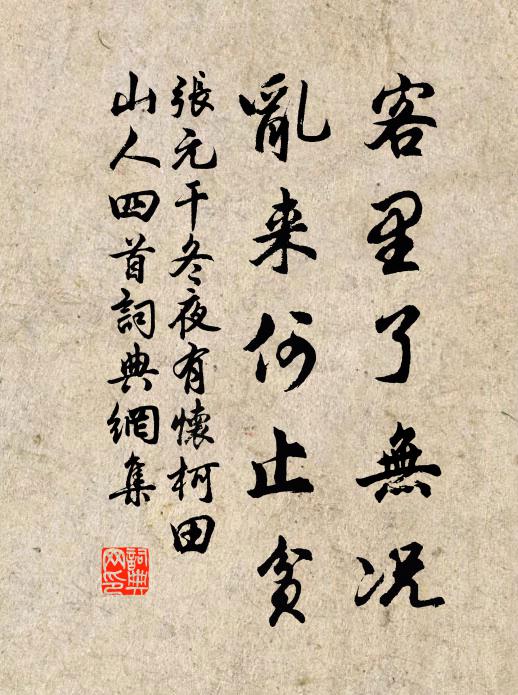 客里了無况
亂来何止貧
張元干冬夜有懷柯田
山人四首詞典網集
詞典网印